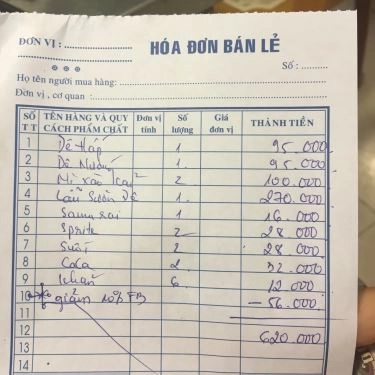 ĐƠN VỊ :
HÓA ĐƠN BÁN LẺ
Số :
Họ tên người mua hàng:
Đơn vị , cơ quan :
SỐ TT TÊN HÀNG VÀ QUY CÁCH PHẨM CHẤT Đơn vị tính Số lượng Giá đơn vị THÀNH TIỀN
1 Dê Hấp 1 95.000
2 Dê Nướng 1 95.000
3 Mì xào 2 100.000
4 Lẩu Sườn Dê 1 270.000
5 Samurai 1 16.000
6 Sprite 2 28.000
7 Suối 2 28.000
8 CoCa 2 32.000
9 Khăn 6 12.000
10 giảm 10% FB - 56.000
11
12 620.000
13
14